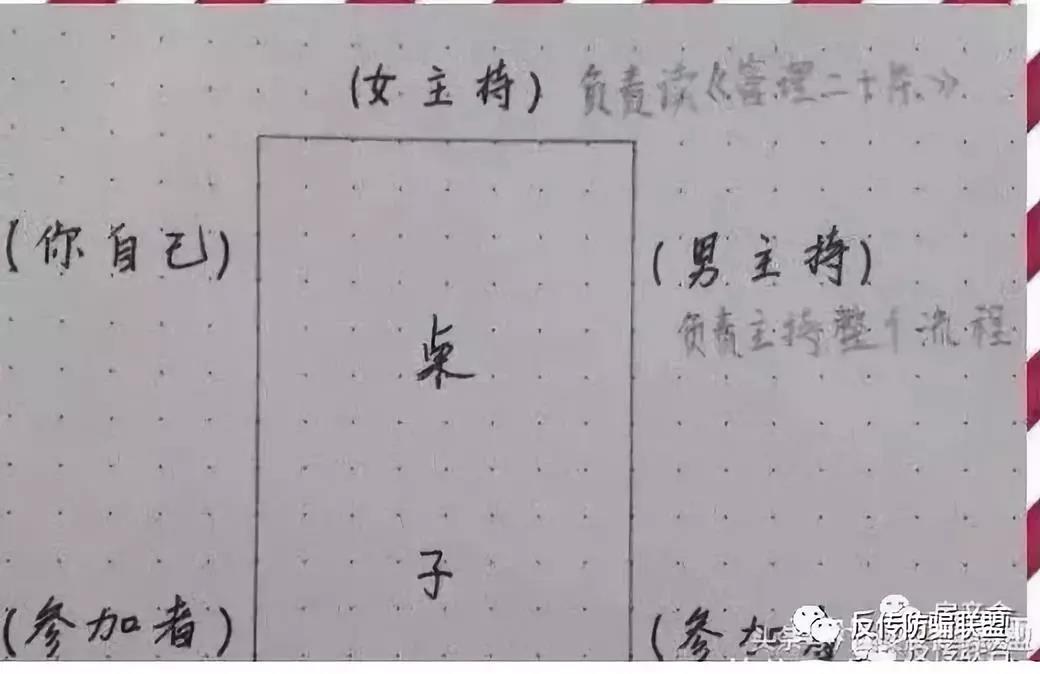 (女主持) 负责读《管理二十条》
(你自己)
(男主持)
负责主持整个流程
桌
子
(参加者)
(参加
反传防骗联盟